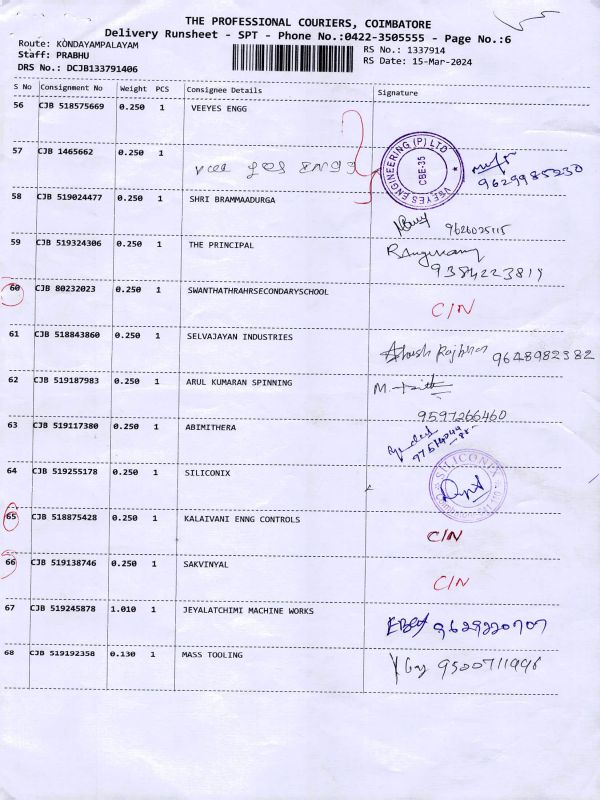 THE PROFESSIONAL COURIERS, COIMBATORE
Delivery Runsheet - SPT - Phone No.:0422-3505555 - Page No.:6
Route: KONDAYAMPALAYAM
Staff: PRABHU
DRS No.: DCJB133791406
RS No.: 1337914
RS Date: 15-Mar-2024
S No Consignment No Weight PCS Consignee Details Signature
56 CJB 518575669 0.250 1 VEEYES ENGG
57 CJB 1465662 0.250 1
VSEYES ENGINEERING (P) LTD
CBE-35
9629985230
58 CJB 519024477 0.250 1 SHRI BRAMMAADURGA
9626025115
59 CJB 519324306 0.250 1 THE PRINCIPAL
9384223814
60 CJB 80232023 0.250 1 SWANTHATHRAHRSECONDARYSCHOOL C/N
61 CJB 518843860 0.250 1 SELVAJAYAN INDUSTRIES 9648982382
62 CJB 519187983 0.250 1 ARUL KUMARAN SPINNING
9597266460
63 CJB 519117380 0.250 1 ABIMITHERA
64 CJB 519255178 0.250 1 SILICONIX
SILICONIX
65 CJB 518875428 0.250 1 KALAIVANI ENNG CONTROLS C/N
66 CJB 519138746 0.250 1 SAKVINYAL C/N
67 CJB 519245878 1.010 1 JEYALATCHIMI MACHINE WORKS 9629220707
68 CJB 519192358 0.130 1 MASS TOOLING 9500711996